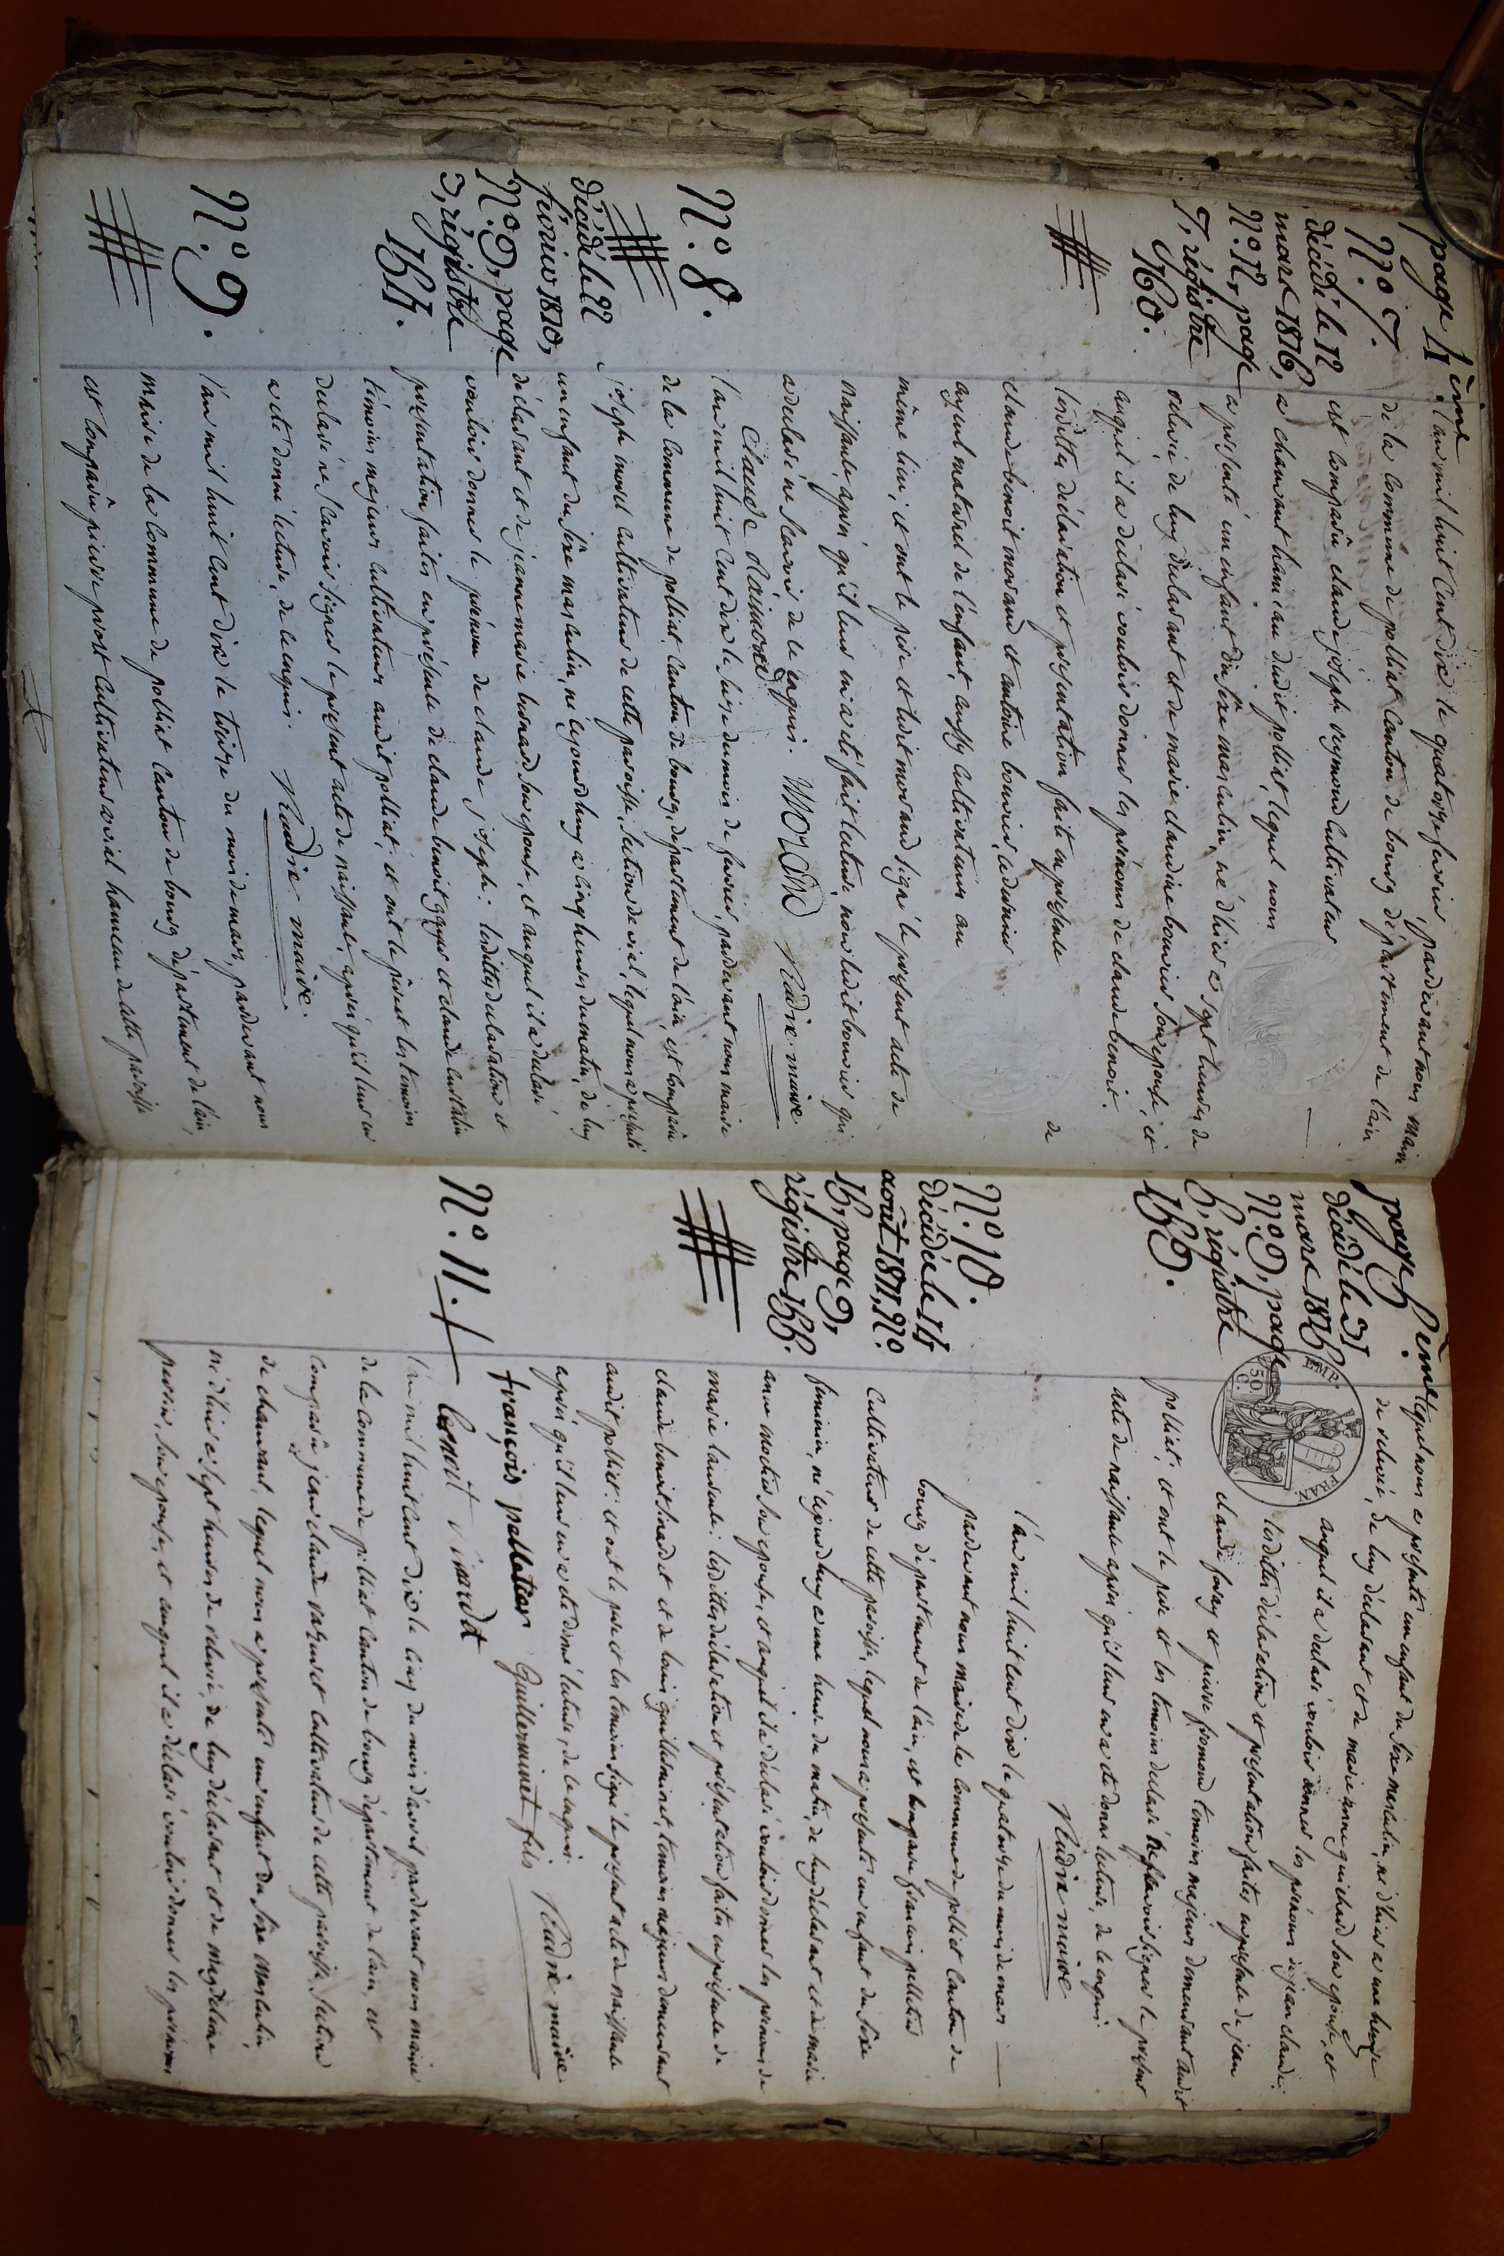 page 4ème
N.o 7.
décédé le 12
mars 1816,
N.o 12, page
7, régistre
160.
l'an mil huit cent dix le quatorze fevrier, pardevant nous maire
de la commune de polliat canton de bourg département de l'ain
est comparû claude joseph reymond cultivateur
a chamvant hameau dudit polliat, lequel nous
a présenté un enfant du sèxe masculin, né d'hier a sept heures de
relevée, de luy déclarant et de marie claudine bouvier son epouse, et
auquel il a déclaré vouloir donner les prénoms de claude benoit.
lesdittes déclaration et présentation faite en présence de
claude benoit morand et antoine bouvier, ce dernier
ayeul maternel de l'enfant, aussy cultivateurs au
même lieu; et ont le père et ledit morand signé le present acte de
naissance, après qu'il leur en a eté fait lecture, non ledit bouvier qui
a declaré ne scavoir de ce enquis. MORAND
Claude Raimond
Nadie maire
N.o 8.
décédé le 22
février 1810,
N.o 9, page
3, régistre
154.
l'an mil huit cent dix le seize du mois de fevrier, pardevant nous maire
de la commune de polliat canton de bourg, département de l'ain, est comparû
joseph morel cultivateur de cette paroisse, section de viel, lequel nous a présenté
un enfant du sèxe masculin, né lejourdhuy a cinq heures du matin, de luy
déclarant et de jeanne marie bernard son epouse, et auquel il a déclaré
vouloir donner le prénom de claude joseph: lesdittes declaration et
présentation faites en présence de claude benoit et claude
témoins majeurs cultivateurs audit polliat; et ont le père et les temoins
declaré ne scavoir signer le present acte de naissance, après qu'il leur en
a eté donné lecture, de ce enquis. Nadie maire.
N.o 9.
l'an mil huit cent dix le treize du mois de mars, pardevant nous
maire de la commune de polliat canton de bourg département de l'ain,
est comparû pierre cultivateur a viel hameau de cette paroisse
page 5ème
décédé le 31
mars 1815
N.o 9, page
6, régistre
159.
lequel nous a présenté un enfant du sèxe masculin, né d'hier a une heure
de relevée, de luy déclarant et de marie anne guichard son epouse, et
auquel il a declaré vouloir donner les prénoms de jean claude:
lesdittes déclaration et présentation faites en présence de jean
claude et pierre témoins majeurs demeurant audit
polliat; et ont le père et les temoins declaré ne scavoir signer le present
acte de naissance après qu'il leur en a eté donné lecture, de ce enquis.
EMP. FRAN.
50. C.
Nadie maire
N.o 10.
décédée le 14
août 1811, N.o
16, page 9,
régistre 155.
l'an mil huit cent dix le quatorze du mois de mars
pardevant nous maire de la commune de polliat canton de
bourg département de l'ain, est comparu francois pelletier
cultivateur de cette paroisse, lequel nous a présenté un enfant du sèxe
feminin, né lejourdhuy a une heure du matin, de luy déclarant et de marie
anne son epouse, et auquel il a déclaré vouloir donner les prénoms de
marie laurence: lesdittes déclaration et présentation faites en présence de
claude benoit et de louis guillerminet, temoins majeurs demeurant
audit polliat: et ont le père et les temoins signé le present acte de naissance
après qu'il leur en a eté donné lecture, de ce enquis.
françois pelletier Guillerminet fils Nadie maire
benoit
N.o 11.
l'an mil huit cent dix le cinq du mois d'avril pardevant nous maire
de la commune de polliat canton de bourg département de l'ain, est
comparû jean claude cultivateur de cette paroisse, section
de chamvant, lequel nous a présenté un enfant du sèxe masculin,
né d'hier a sept heures de relevée, de luy déclarant et de magdelaine
son epouse, et auquel il a déclaré vouloir donner les prénoms